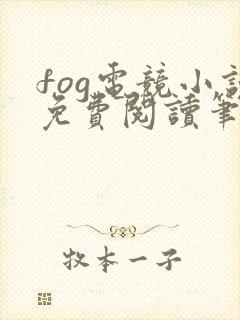 fog電競小說
免費閱讀筆
牧本一子